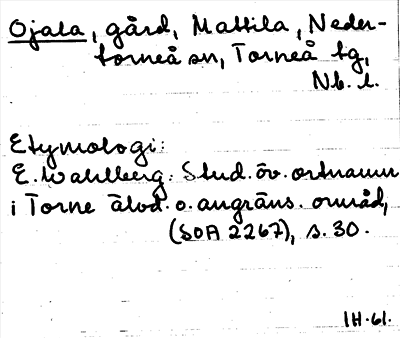 Ojala, gård, Mattila, Neder-
torneå sn, Torneå tg,
Nb. l.
Etymologi:
E. Wahlberg: Stud. öv. ortnamn
i Torne älvd. o. angräns. områd,
(SOA 2267), s. 30.
IH-61.